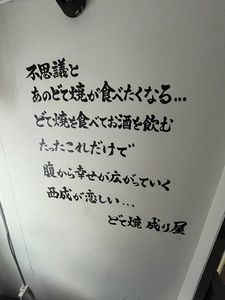 不思議と
あのどて焼が食べたくなる…
どて焼を食べてお酒を飲む
たったこれだけで
腹から幸せが広がっていく
西成が恋しい…
どて焼 成り屋